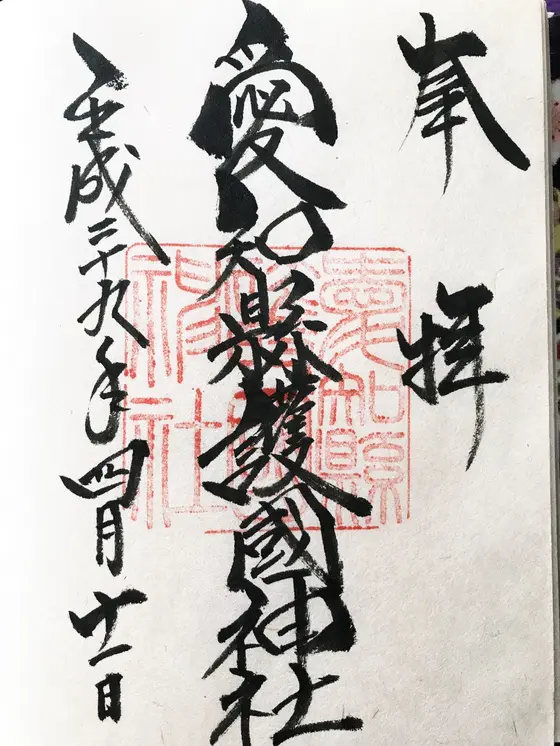 奉拝
愛知縣護國神社
平成二十九年四月十一日
愛知縣
護國
神社